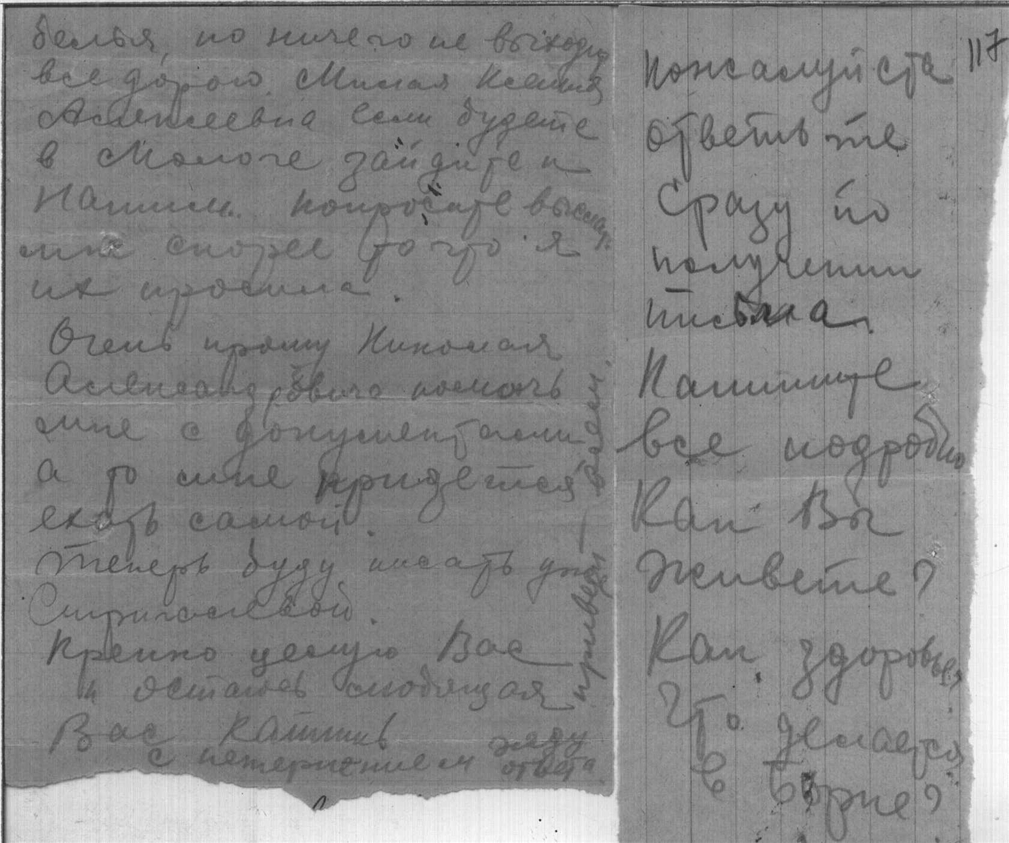 белья, но ничего не выходит
все дорого. Милая Ксения
Алексеевна если будете
в Мологе зайдите к
Нашим. попросите выслать
мне скорее то что я
их просила.
Очень прошу Николая
Александровича помочь
мне с документами
а то мне придется
ехать самой.
Теперь буду писать уже
Крепко целую Вас
и остаюсь любящая
Вас
с нетерпением жду
ответа.
привет всем.
117
пожалуйста
ответьте
сразу по
получении
письма.
Напишите
все подробно
Как Вы
живете?
Как здоровье,
Что делается
в Борке?